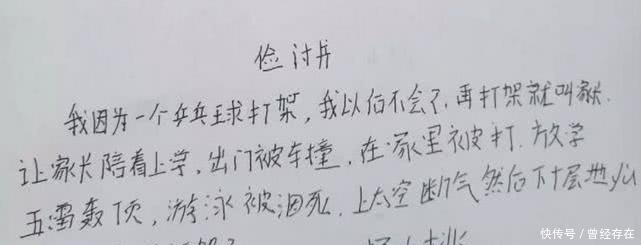 俭讨书
我因为一个乒乓球打架，我以后不会了，再打架就叫家长
让家长陪着上学，出门被车撞，在家里被打，放学
五雷轰顶，游泳被淹死，上太空断气然后下十层地yu
快传号/曾经存在